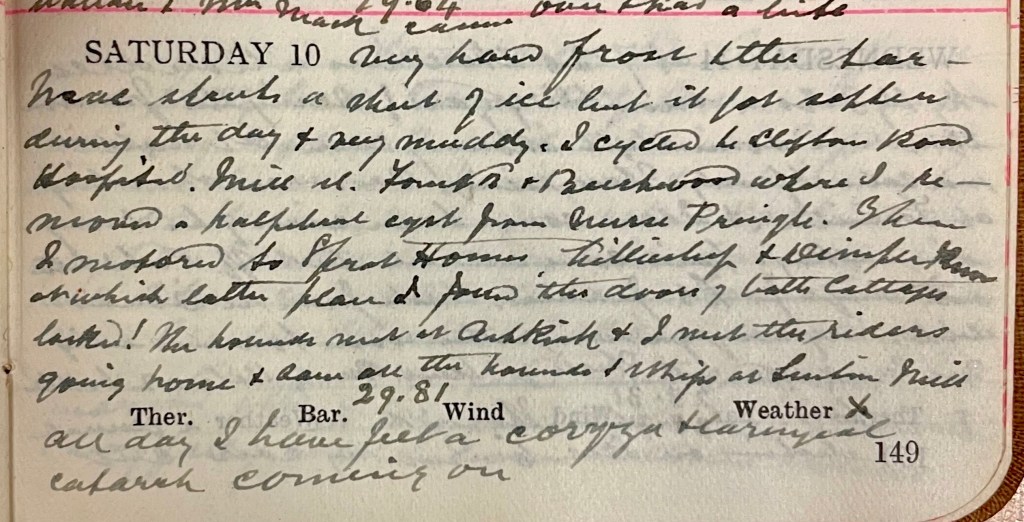 29.64 over & had a little
Mack came
SATURDAY 10 Very hard frost & the tar-
mac streets a sheet of ice but it got softer
during the day & very muddy. I cycled to Clifton Road
Hospital. Mill St. & Beechwood where I re-
moved a palpebral cyst from Nurse Pringle. Then
I motored to Sprot Homes, Lilliesleaf &
at which latter place I found the doors of both cottages
locked! The hounds met at Ashkirk & I met the riders
going home & saw all the hounds & whips at Linton Mill
29.81
Ther. Bar. Wind Weather X
all day I have felt a coryza & laryngeal
catarrh coming on
149